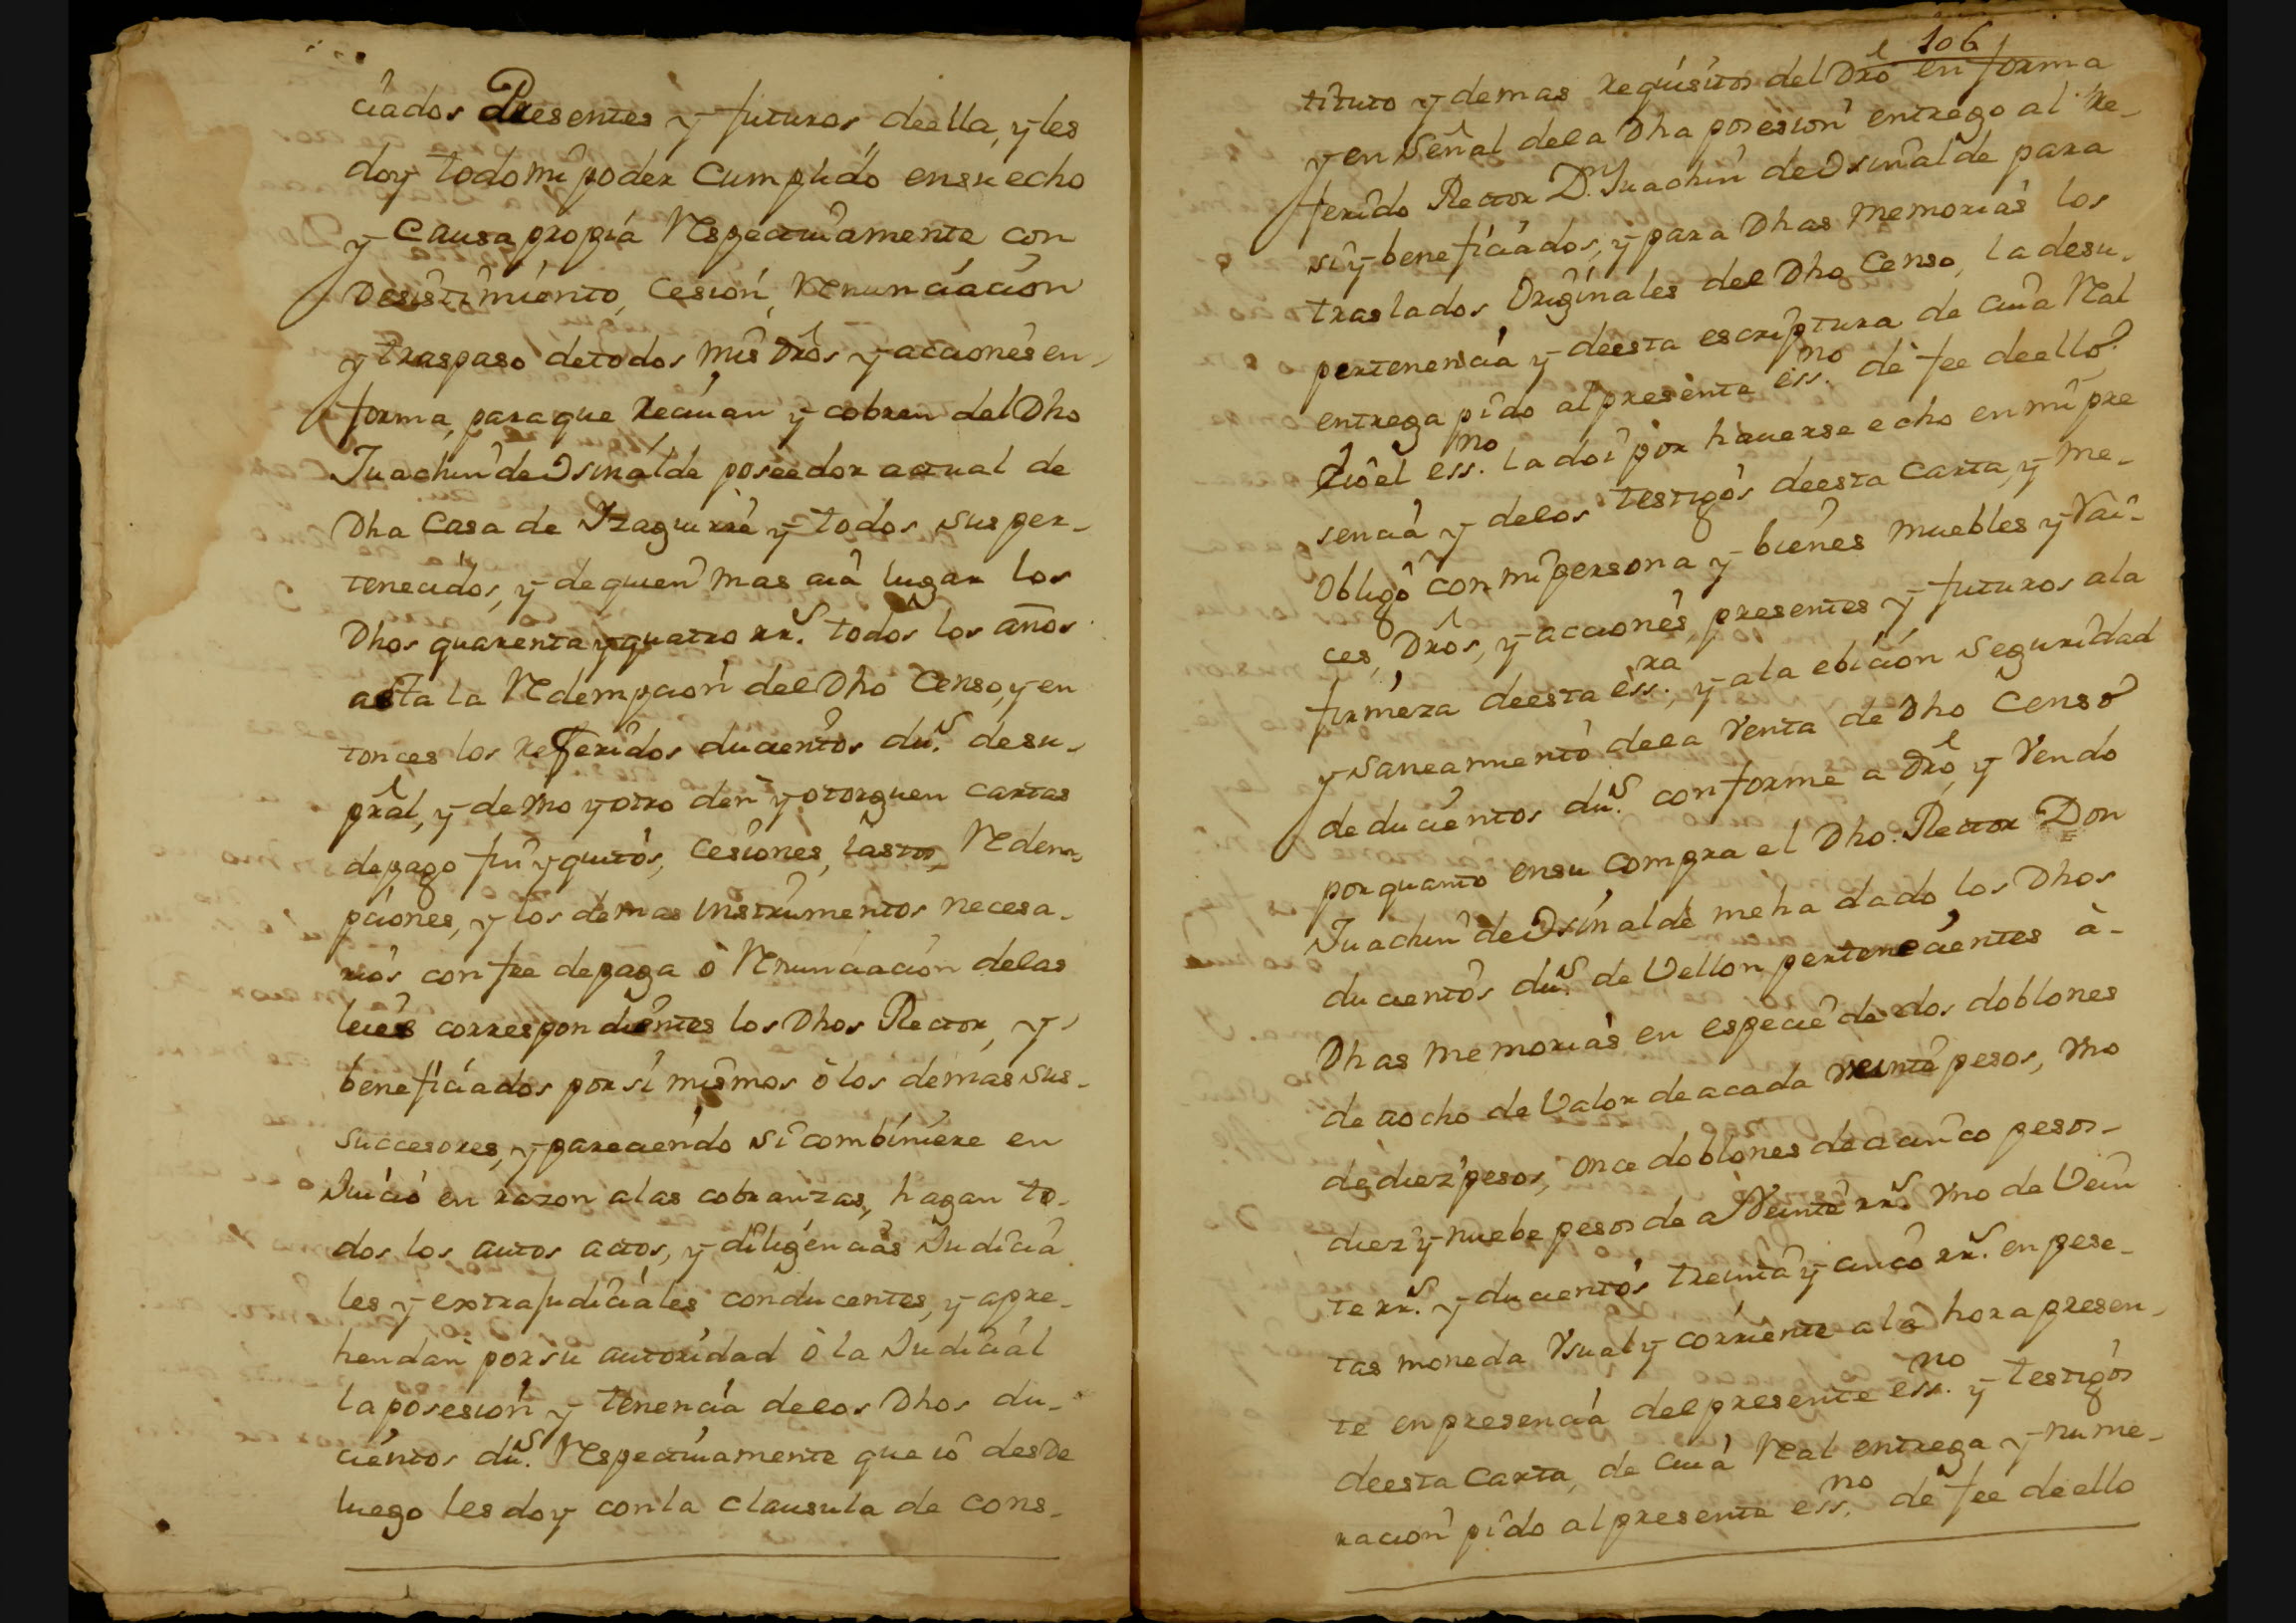 ciados Presentes y futuros deella, y les
doy todo mi poder Cumplido ensu echo
y Causa propia Respectiuamente con
Desistimiento, Cesion, Renunciacion
y traspaso detodos mis Dros y acciones en
forma, paraque Reciuan y cobren del Dho
Juachin de Osinalde poseedor actual de
Dha Casa de Yzaguirre y todos sus per-
tenecidos, y de quien mas aia lugar los
Dhos quarenta y quatro rrs. todos los años
asta la Redempcion del Dho Censo, y en
tonces los Referidos ducientos dus. desu
pral, y de vno y otro den y otorguen cartas
depago fin y quitos, Cesiones, lastos, Redem
pciones, y los demas instrumentos necesa-
rios con fee depaga ò Renunciacion delas
leies correspondientes los Dhos Rector, y
beneficiados por si mismos ò los demas sus-
successores, y pareciendo si combiniere en
Juicio en razon alas cobranzas, hagan to-
dos los autos actos, y diligencias Judicia
les y extrajudiciales conducentes, y apre-
hendan por su autoridad ò la Judicial
la posesion y tenencia delos Dhos du-
cientos dus. Respectiuamente que io desde
luego les doy con la Clausula de Cons-
106
tituto y demas requisitos del Dro en forma
y en Señal dela Dha posesion entrego al Re-
ferido Rector Dn. Juachin de Osinalde para
si y beneficiados, y para Dhas Memorias los
traslados Originales del Dho Censo, la desu
pertenencia y deesta escriptura de cuia Real
entrega pido al presente essno. dè fee deello
È io el essno. la doi por hauerse echo en mi pre
sencia y delos testigos deesta Carta, y me-
Obligo con mi persona y bienes muebles y Rai-
ces, Dros, y acciones, presentes y futuros ala
firmeza deesta essra., y ala ebicion Seguridad
y Saneamiento dela Venta de Dho Censo
de ducientos dus. conforme a Dro, y Vendo
por quanto ensu Compra el Dho Rector Don
Juachin de Osinalde me ha dado los Dhos
ducientos dus. de Vellon pertenecientes à-
Dhas Memorias en especie de dos doblones
de aocho de Valor de acada veinte pesos, vno
de diez pesos, Once doblones de acinco pesos-
diez y nuebe pesos de a Veinte rrs. vno de Vein
te rrs. y ducientos treinta y cinco rrs. en pese-
tas moneda Vsual y corriente ala hora presen-
te en presencia del presente essno. y testigos
deesta Carta, de Cuia Real entrega y nume-
racion pido al presente essno. dè fee deello